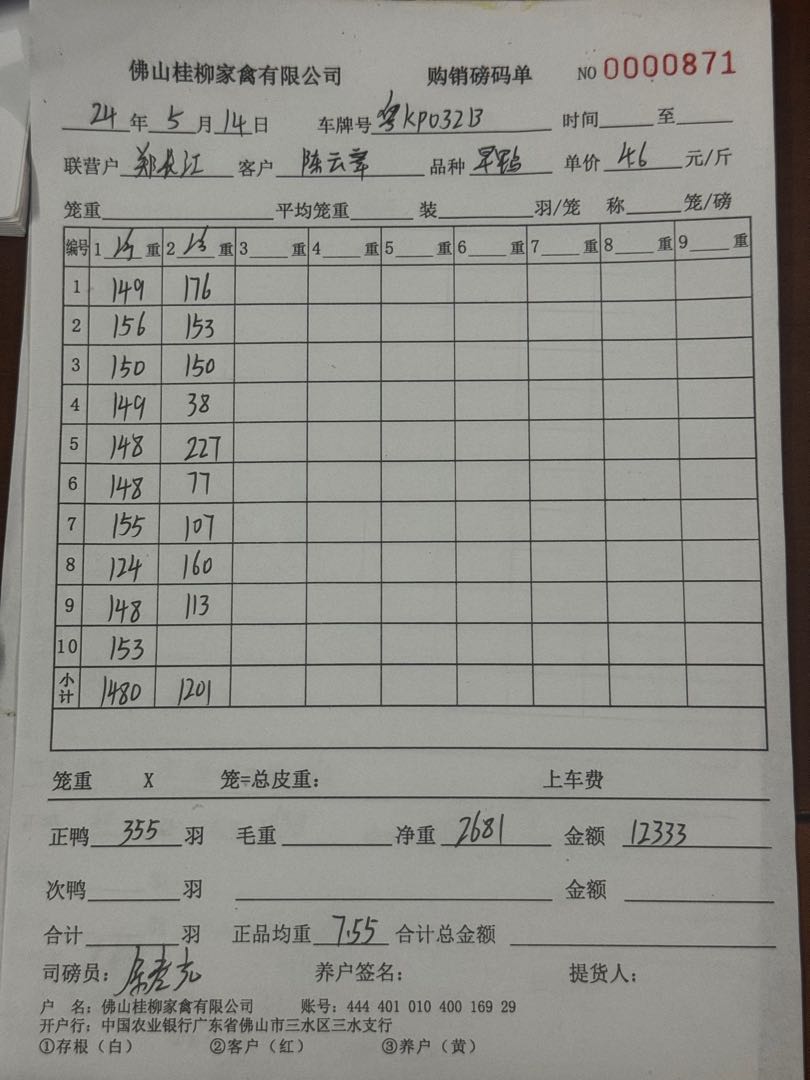 佛山桂柳家禽有限公司 购销磅码单 NO 0000871
24年5月14日 车牌号粤KP032B 时间 至
联营户郑长江 客户 陈云 品种 单价4.6元/斤
笼重 平均笼重 装 羽/笼 称 笼/磅
编号 1 重 2 重 3 重 4 重 5 重 6 重 7 重 8 重 9 重
1 149 176
2 156 153
3 150 150
4 149 38
5 148 227
6 148 77
7 155 107
8 124 160
9 148 113
10 153
小计 1480 1201
笼重 X 笼=总皮重: 上车费
正鸭355羽 毛重 净重2681 金额 12333
次鸭 羽 金额
合计 羽 正品均重7.55 合计总金额
司磅员: 养户签名: 提货人:
户 名: 佛山桂柳家禽有限公司 账号: 444 401 010 400 169 29
开户行: 中国农业银行广东省佛山市三水区三水支行
①存根(白) ②客户(红) ③养户(黄)